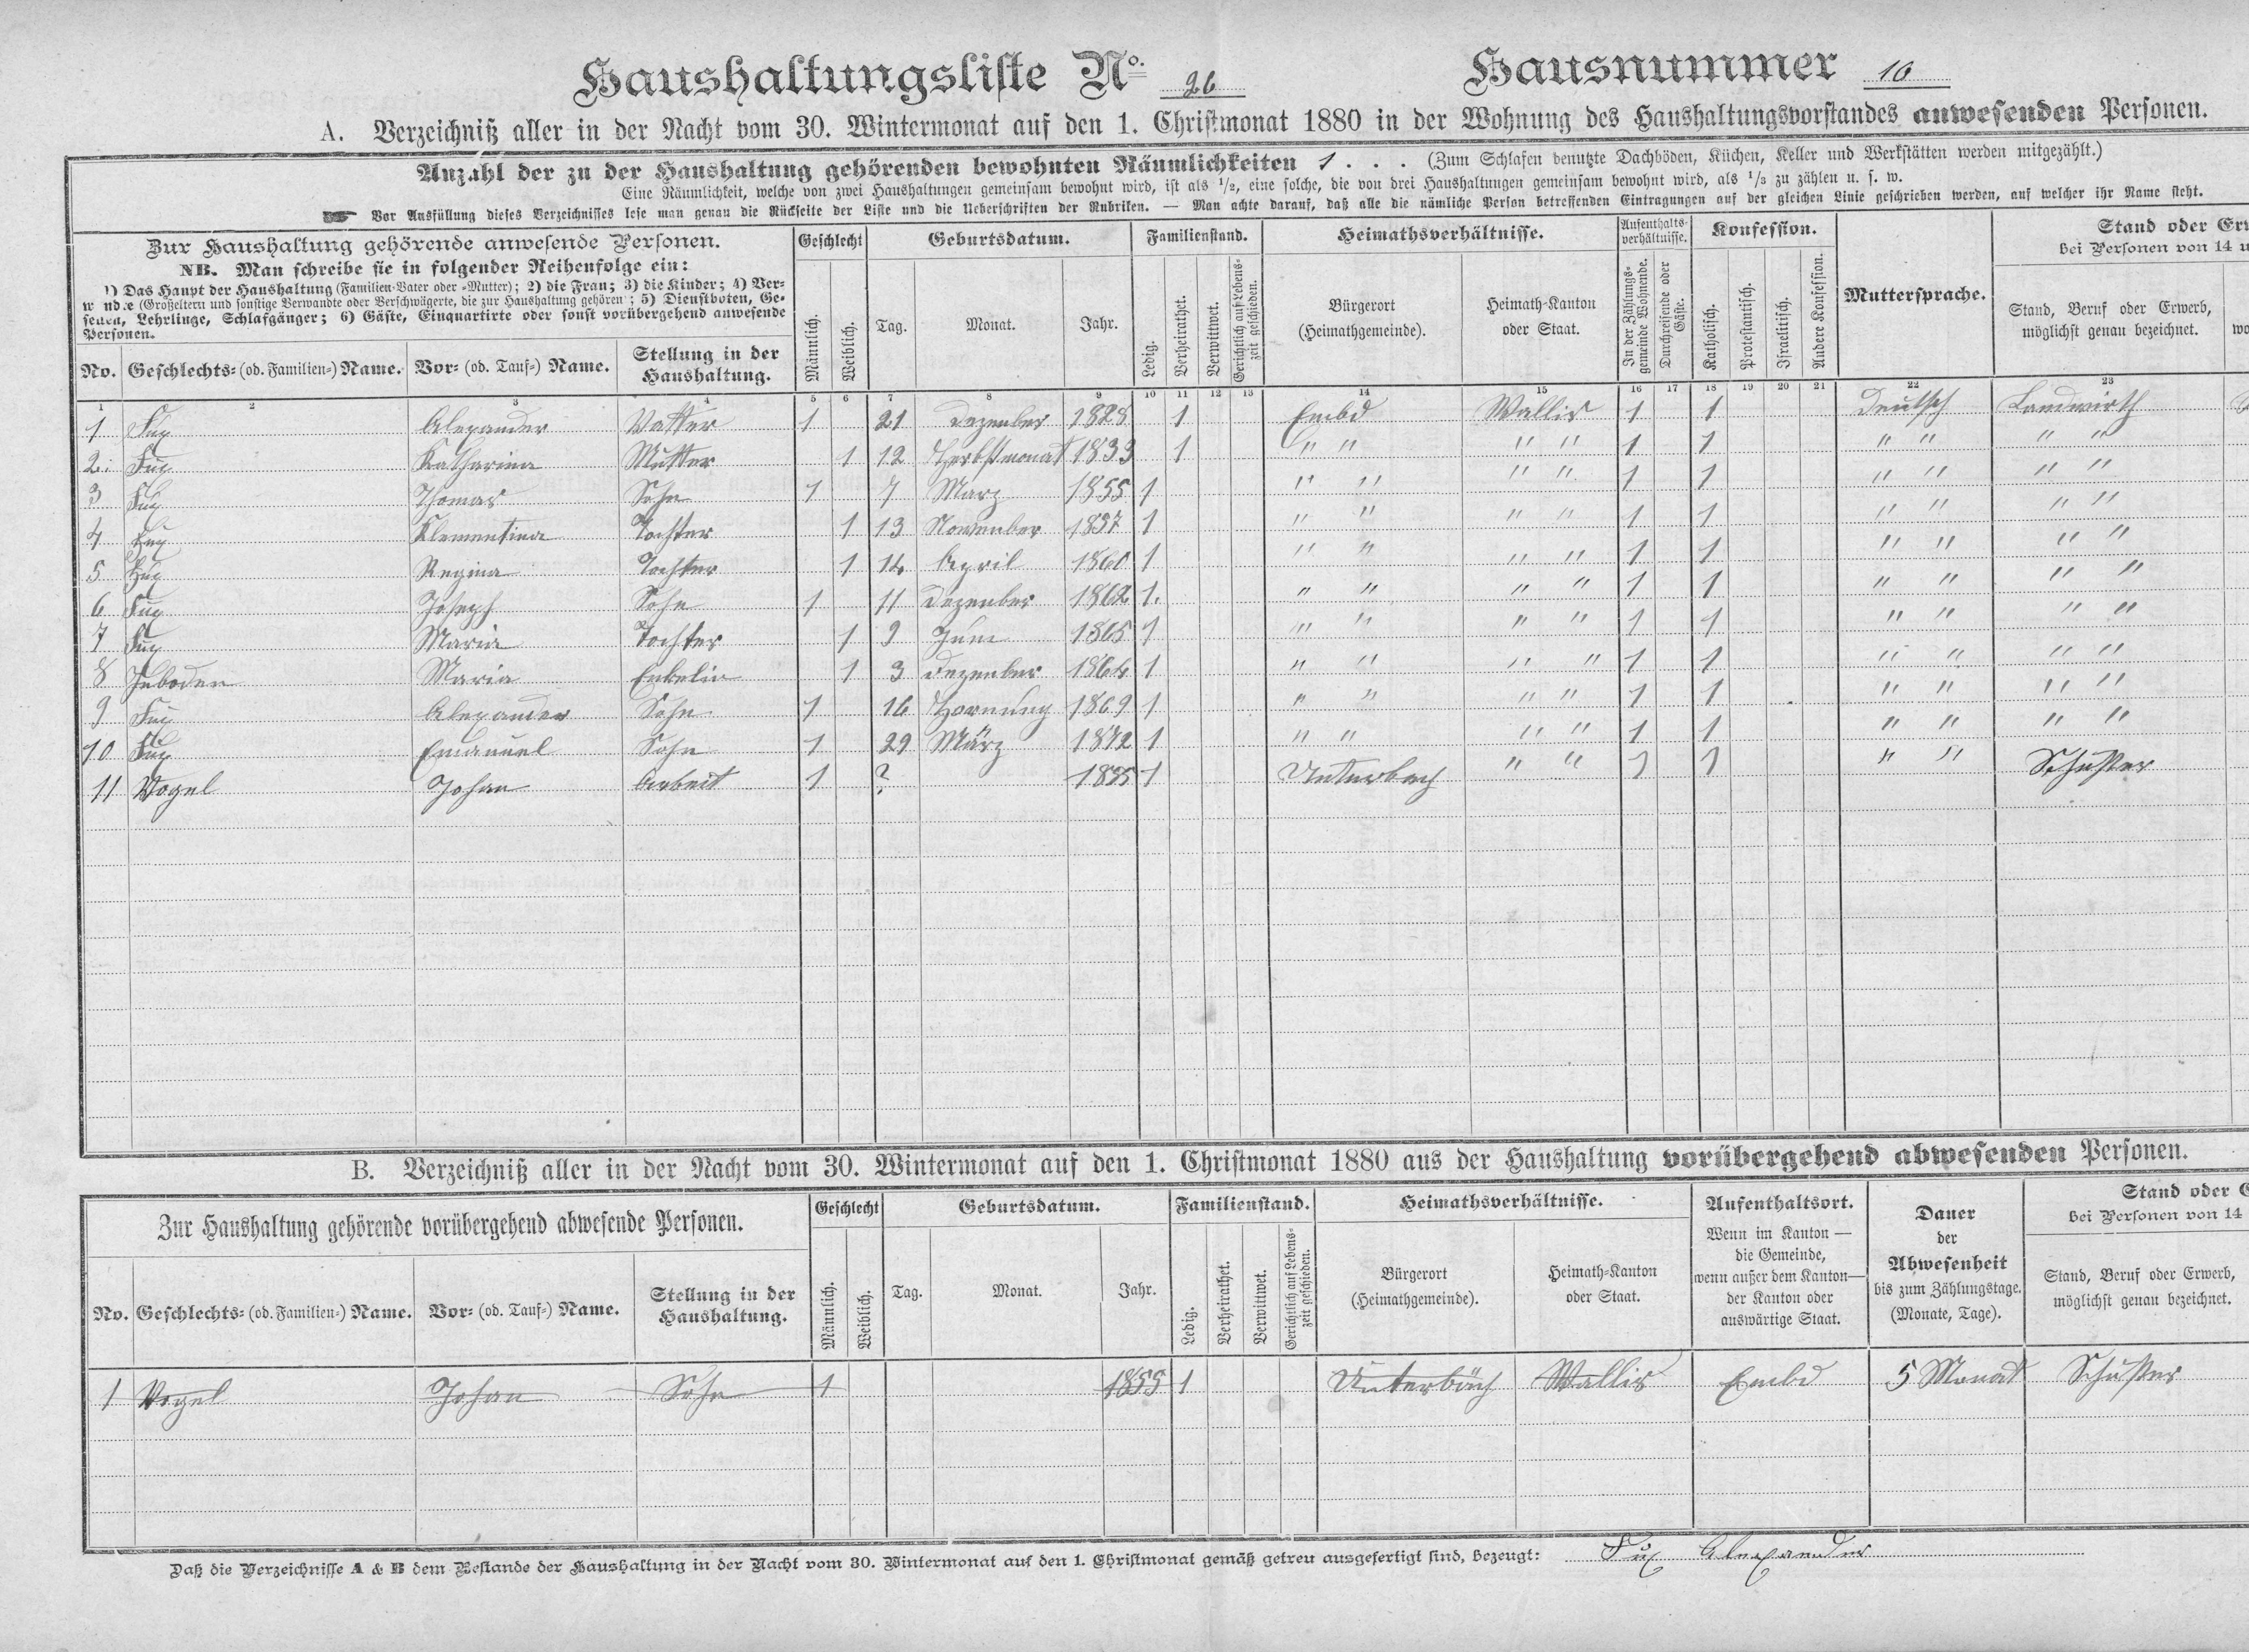 Haushaltungsliste No. 26 Hausnummer 10
A. Verzeichniß aller in der Nacht vom 30. Wintermonat auf den 1. Christmonat 1880 in der Wohnung des Haushaltungsvorstandes anwesenden Personen.
Anzahl der zu der Haushaltung gehörenden bewohnten Räumlichkeiten 1 . . . (Zum Schlafen benutzte Dachböden, Küchen, Keller und Werkstätten werden mitgezählt.)
Eine Räumlichkeit, welche von zwei Haushaltungen gemeinsam bewohnt wird, ist als 1/2, eine solche, die von drei Haushaltungen gemeinsam bewohnt wird, als 1/3 zu zählen u. s. w.
Vor Ausfüllung dieses Verzeichnisses lese man genau die Rückseite der Liste und die Ueberschriften der Rubriken. — Man achte darauf, daß alle die nämliche Person betreffenden Eintragungen auf der gleichen Linie geschrieben werden, auf welcher ihr Name steht.
Zur Haushaltung gehörende anwesende Personen.
NB. Man schreibe sie in folgender Reihenfolge ein:
1) Das Haupt der Haushaltung (Familien-Vater oder -Mutter); 2) die Frau; 3) die Kinder; 4) Ver-
w nd.e (Großeltern und sonstige Verwandte oder Verschwägerte, die zur Haushaltung gehören); 5) Dienstboten, Ge-
sellen, Lehrlinge, Schlafgänger; 6) Gäste, Einquartirte oder sonst vorübergehend anwesende
Personen.
No. Geschlechts- (od. Familien-) Name. Vor- (od. Tauf-) Name. Stellung in der Haushaltung.
Geschlecht
Männlich. Weiblich.
Geburtsdatum.
Tag. Monat. Jahr.
Familienstand.
Ledig. Verheirathet. Verwittwet. Gerichtlich auf Lebens-
zeit geschieden.
Heimathsverhältnisse.
Bürgerort
(Heimathgemeinde).
Heimath-Kanton
oder Staat.
Aufenthalts-
verhältnisse.
In der Zählungs-
gemeinde Wohnende.
Durchreisende oder
Gäste.
Konfession.
Katholisch. Protestantisch. Israelitisch. Andere Konfession.
Muttersprache.
Stand oder Er
bei Personen von 14 u
Stand, Beruf oder Erwerb,
möglichst genau bezeichnet.
wo
1 2 3 4 5 6 7 8 9 10 11 12 13 14 15 16 17 18 19 20 21 22 23
1 Fux Alexander Vatter 1 21 Dezember 1828 1 Embd Wallis 1 1 Deutsch Landwirth
2. Fux Katharina Mutter 1 12 Herbstmonat 1833 1 " " " " 1 1 " " " "
3 Fux Thomas Sohn 1 7 Marz 1855 1 " " " " 1 1 " " " "
4 Fux Klementina Tochter 1 13 November 1857 1 " " " " 1 1 " " " "
5 Fux Regina Tochter 1 14 April 1860 1 " " " " 1 1 " " " "
6 Fux Joseph Sohn 1 11 Dezember 1862 1. " " " " 1 1 " " " "
7 Fux Maria Tochter 1 9 Juni 1865 1 " " " " 1 1 " " " "
8 Inboden Maria Enkelin 1 3 Dezember 1864 1 " " " " 1 1 " " " "
9 Fux Alexander Sohn 1 16 Hornung 1869 1 " " " " 1 1 " " " "
10 Fux Emanuel Sohn 1 29 März 1872 1 " " " " 1 1 " " " "
11 Vogel Johan Arbeit 1 ? 1855 1 Unterbach " " 1 1 " " Schuster
B. Verzeichniß aller in der Nacht vom 30. Wintermonat auf den 1. Christmonat 1880 aus der Haushaltung vorübergehend abwesenden Personen.
Zur Haushaltung gehörende vorübergehend abwesende Personen.
No. Geschlechts- (od. Familien-) Name. Vor- (od. Tauf-) Name. Stellung in der Haushaltung.
Geschlecht
Männlich. Weiblich.
Geburtsdatum.
Tag. Monat. Jahr.
Familienstand.
Ledig. Verheirathet. Verwittwet. Gerichtlich auf Lebens-
zeit geschieden.
Heimathsverhältnisse.
Bürgerort
(Heimathgemeinde).
Heimath-Kanton
oder Staat.
Aufenthaltsort.
Wenn im Kanton —
die Gemeinde,
wenn außer dem Kanton—
der Kanton oder
auswärtige Staat.
Dauer
der
Abwesenheit
bis zum Zählungstage.
(Monate, Tage).
Stand oder
bei Personen von 14
Stand, Beruf oder Erwerb,
möglichst genau bezeichnet.
1 Vogel Johan Sohn 1 1855 1 Unterbäch Wallis Embd 5 Monat Schuster
Daß die Verzeichnisse A & B dem Bestande der Haushaltung in der Nacht vom 30. Wintermonat auf den 1. Christmonat gemäß getreu ausgefertigt sind, bezeugt: Fux Alexander